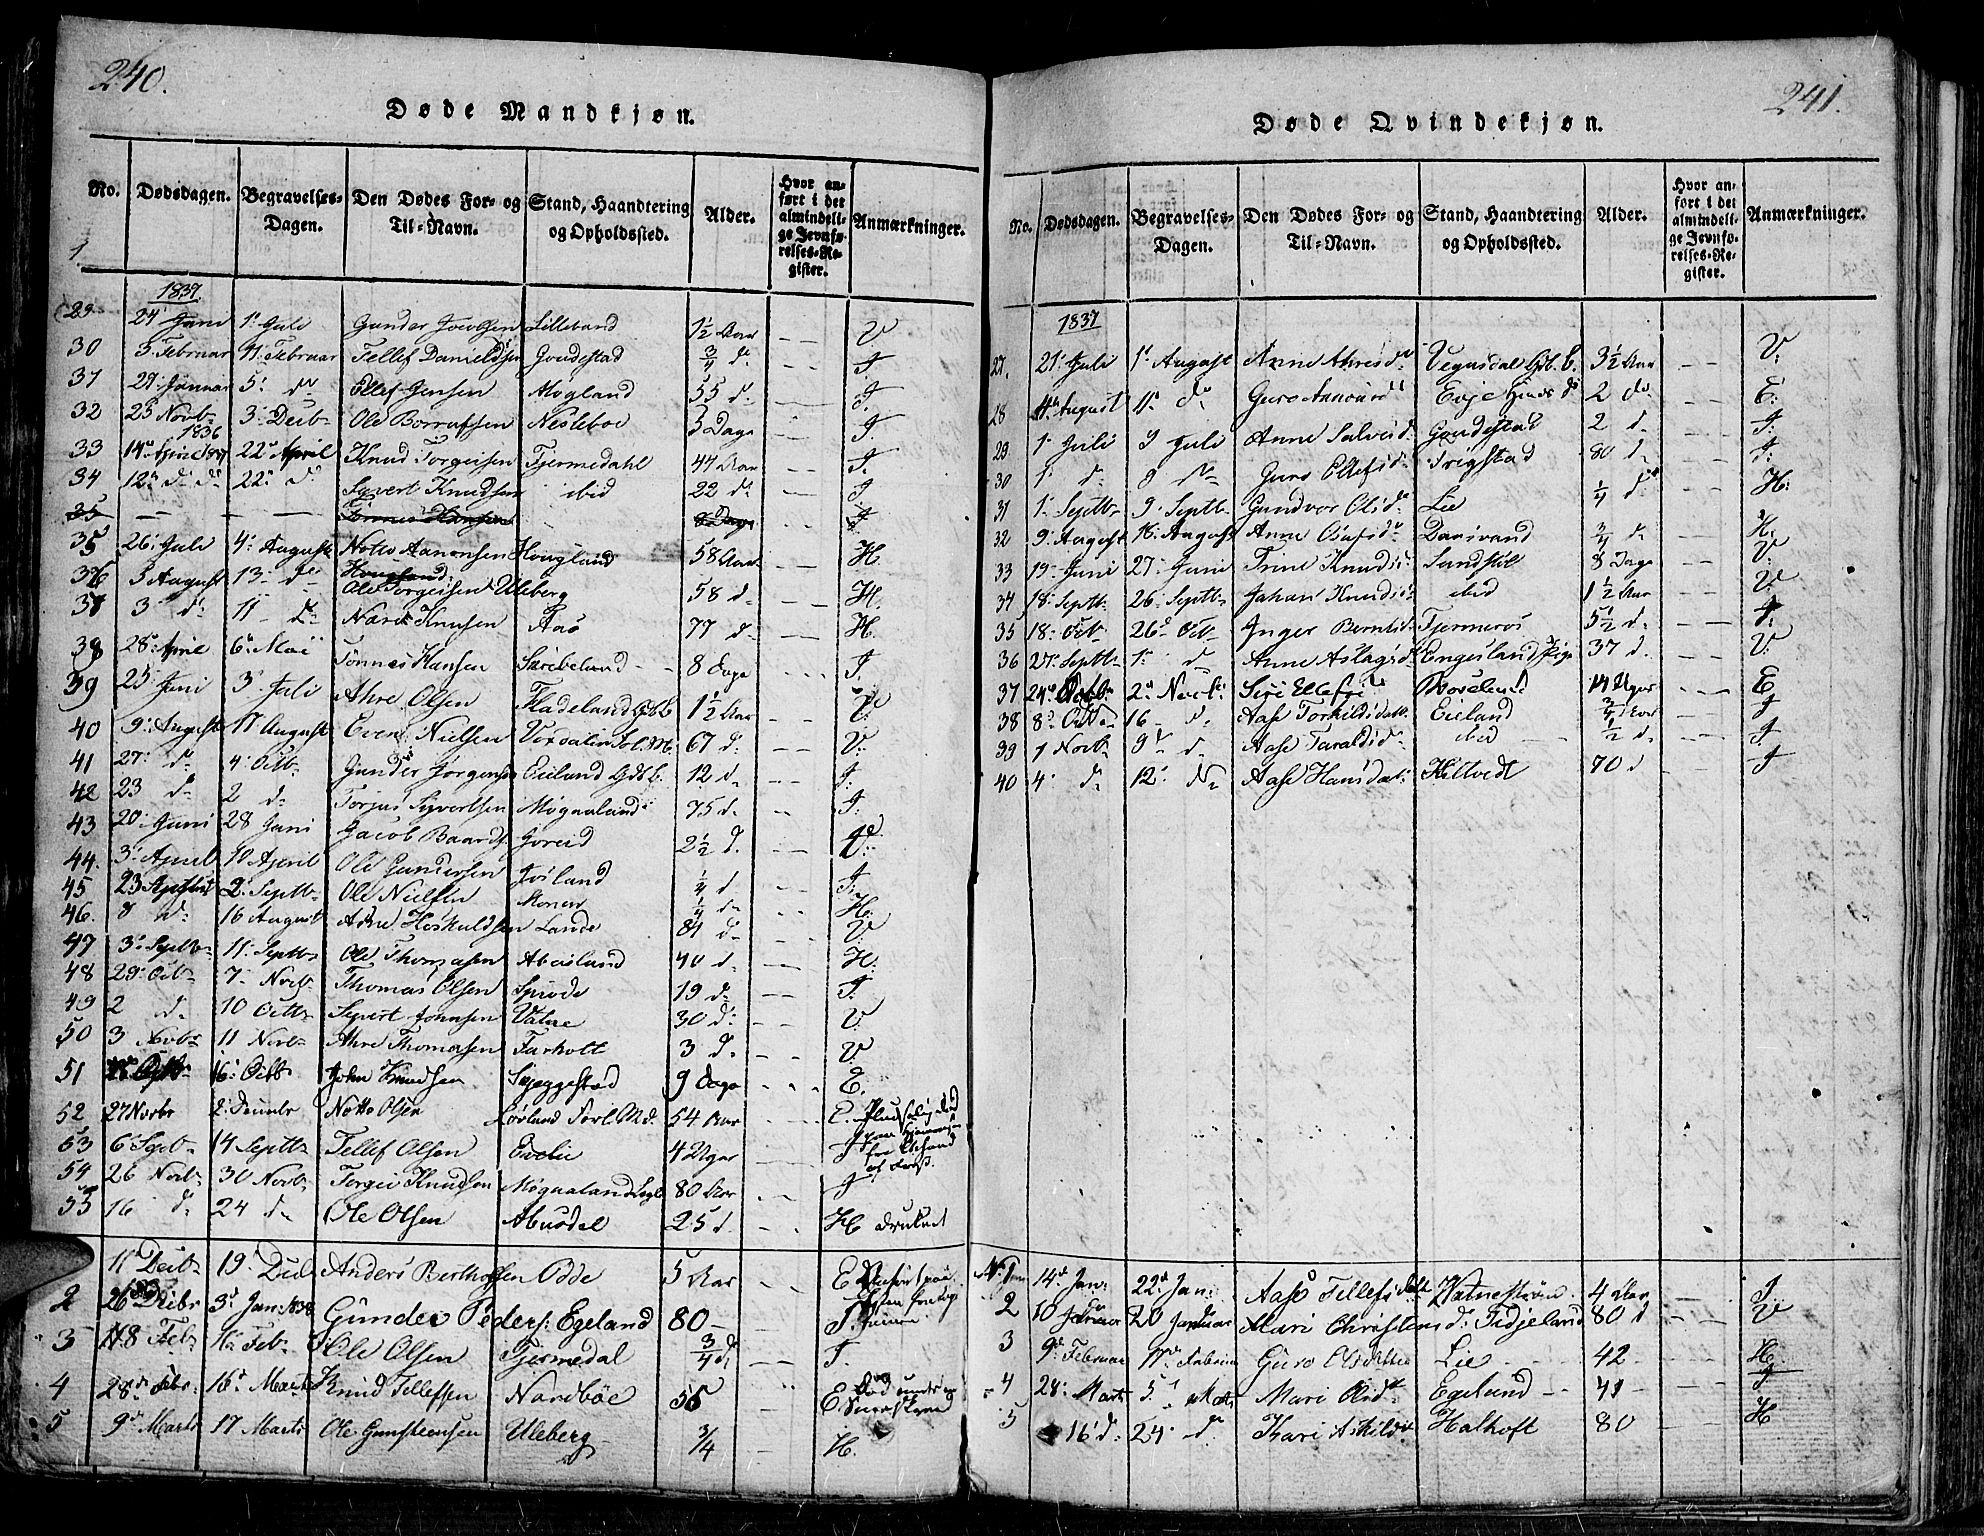 240.
Døde Mandkjøn.
No. Dødsdagen. Begravelses-Dagen. Den Dødes For- og Til-Navn. Stand, Haandtering og Opholdssted. Alder. Hvor anført i det almindelige Jevnførelses-Register. Anmærkninger.
1
1837
29 24 Juni 1. Juli Gunder Lillesand 1½ Aar V.
30 3 Februar 11. Februar Tellef Danielsen 3/4 d. I.
31 29. Januar 5. d. Ellef Jensen Møgland 55 d. I.
32 25 Novb. 1836 3. Decb. Ole Nesleboe 3 Dage I.
33 14. April 1837 22. April Knud Torgeisen Tjermedahl 44 Aar I.
34 12. d. d. 22. d. Syvert Knudsen ibid 22 d. I
35 — — Tønnes Hansen 8 Dage I
35 26. Juli 4. August Notto Aanonsen Hougland 58 Aar H.
36 5 August 13 d. Hougland Ole Torgeisen Uleberg 58 d. H.
37 3 d. 11 d. Narve Knusen Aas 77 d. H.
38 28. April 6. Mai Tønnes Hansen Skribeland 8 Dage I.
39 25 Juni 3 Juli Ahre Olsen Fladeland Gdb. 1½ Aar V.
40 9. August 17 August Even Nielsen 67 d. V.
41 27. d. 4. Octb. Gunder Jørgensen Eieland Gdb. 12 d. I.
42 23 d. 2 d. Torjus Syvertsen Møgaaland 75 d. I.
43 20. Juni 28 Juni Jacob Baards. Goreid 2½ d. V.
44. 3. April 10 April Ole Gundersen Josland 1/4 d. I.
45 23 August 2. Septb. Ole Nielsen Monen 1/4 d. H.
46. 8 d. 16 August Adne Høskuldsen Lande 84 d. V.
47 3. Septb. 11. Septb. Ole Thomasen Abesland 40 d. H.
48 29. Octb. 7. Novb. Thomas Olsen Sprode 19 d. I.
49 2 d. 10 Octb. Syvert Johnsen Vatne 30 d. V.
50 3 Novbr 11 Novb. Ahre Thomasen Farholt 3 d. V.
51 16. Octb. John Knudsen Skjeggestad 9 Dage E.
52 27 Novbr 2. Decembr Notto Olsen 54 Aar E.
53 6. Septb. 14 Septb. Tellef Olsen Evelie 4 Uger I
54 26 Novb. 30 Novb. Torgei Knudsen Møgaaland 80 Aar I
55 16 d. 24 d. Ole Olsen Abusdal 25 d. H druknet
11 Decb. 19. Dec. Anders Berthosen Odde 5 Aar E
2 26 Decbr 3. Jan: 1838 Gunder Peders: Egeland 80 — I
3 8 Feb. 16 Feb. Ole Olsen Tjermedal 3/4 d. I.
4 28d. Febr. 16d. Marts Knud Tellefsen Nordbøe 56 E
5 9d. Marts 17 Marts Ole Gunsteensen Uleberg 3/4 H.
241.
Døde Qvindekjøn.
No. Dødsdagen. Begravelses-Dagen. Den Dødes For- og Til-Navn. Stand, Haandtering og Opholdssted. Alder. Hvor anført i det almindelige Jevnførelses-Register. Anmærkninger.
1837
27. 21. Juli 1. August Anne Ahresd. Vegusdal Gdb. 3½ Aar V.
28 4. August 11. d. Guro Aanonsd. Evje 2 d. E.
29 1. Juli 9 Juli Anne Salvesd. 2 d. I.
30 1 d. 9 d. Guro Ellefsd. Frigstad 80 d. I.
31 1. Septb. 9. Septb. Gundvor Olsd. Lie 1/4 d. H.
32 9. August 16. August Anne Danivand 3/4 d. H.
33 19. Juni 27. Juni Trine Knudsd. Sandstøl 8 Dage V.
34 18. Septb. 26. Septb. Johan Knudsd. ibid 1½ Aar V.
35 18. Octb. 26. Octb. Inger Berntsd. Tjermeros 5½ d. I.
36 27. Septb. 1. d. Anne Aslagsd. Engesland Pige 37 d. V.
37 24. Octb. 2. Novb. Siri Ellefsd. 14 Uger E
38 8. Octb. 16 d. Aase Torkildsdatt. Eieland 3/4 I
39 1 Novb. 9d. d. Aase Taraldsd. ibid ½ d. I.
40 4. d. 12. d. Aase Hansdat. Hiltvedt 70 d I
1 14d. Jan: 22d. Jan: Aase Tellefsdatt Vatnestrøm 4 Aar I.
2 10 Januar 20 Januar Mari Christensd: Tidjeland 80 d V
3 9d. Februar 17de Februar Guro Olsdatter Lie 42 H.
4 28. Marts 5. Mari Olsd. Egeland 41 I
5 16 d. 24. d. Kari Askildsd. Halhoft 80 H